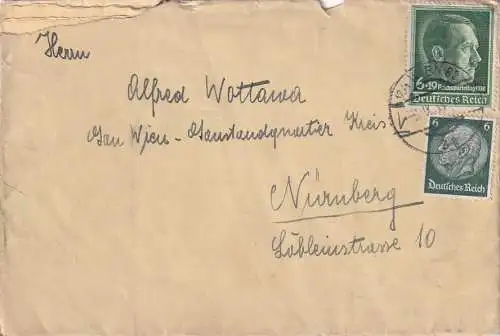 Herrn
Alfred Wottawa
Gau Wien - Gaustandquartier Kreis
Nürnberg
Löbleinstrasse 10
6+19 Reichsparteitag 1938
Deutsches Reich
6
6
Deutsches Reich